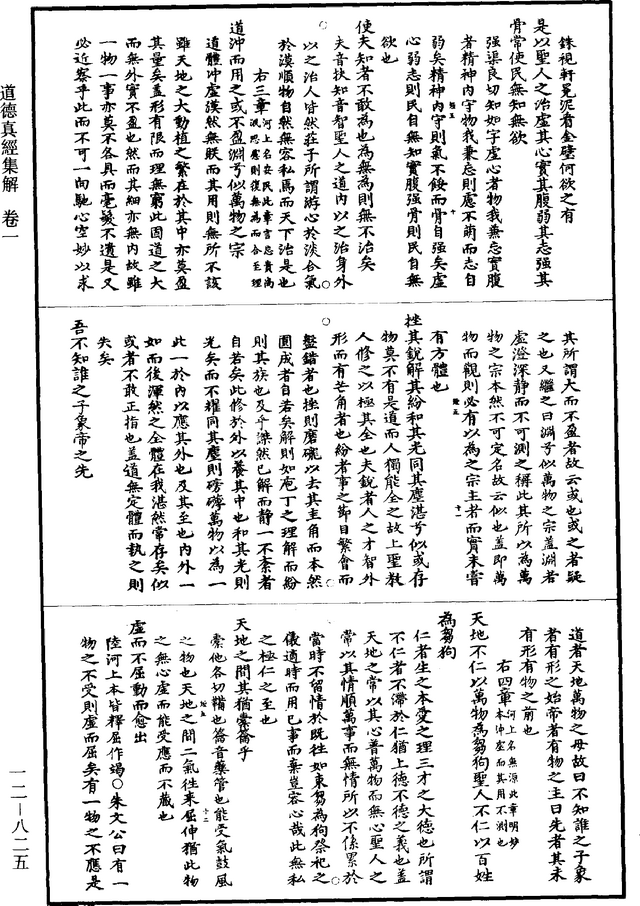 銖視軒冕泥看金璧何欲之有
是以聖人之治虛其心實其腹弱其志強其
骨常使民無知無欲
強渠良切知如字虛心者物我兼忘實腹
者精神內守物我兼忘則慮不萌而志自
弱矣精神內守則氣不餒而骨自強矣虛
心弱志則民自無知實腹強骨則民自無
欲也
使夫知者不敢為也為無為則無不治矣
夫音扶知音智聖人之道內以之治身外
以之治人皆然莊子所謂游心於淡合氣
於漠順物自然無容私焉而天下治是也
右三章河上名安民此章言忘貴尚泯思慮則復無為而合至理
道沖而用之或不盈淵兮似萬物之宗
道體沖虛漠然無眹而其用則無所不該
雖天地之大動植之繁在於其中亦莫盈
其量矣蓋形有限而理無窮此固道之大
而無外實不盈也然而其細亦無內故雖
一物一事亦莫不各具而毫髮不遺是又
必近察乎此而不可一向馳心空妙以求
其所謂大而不盈者故云或也或之者疑
之也又繼之曰淵兮似萬物之宗蓋淵者
虛澄深靜而不可測之稱此其所以為萬
物之宗本然不可定名故云似也蓋即萬
物而觀則必有以為之宗主者而實未嘗
有方體也
挫其銳解其紛和其光同其塵湛兮似或存
物莫不有是道而人獨能全之故上聖教
人修之以極其全也夫銳者人之才智外
形而有芒角者也紛者事之節目繁會而
盤錯者也挫則磨礲以去其圭角而本然
圓成者自若矣解則如庖丁之理解而紛
則其族也及乎謋然已解而靜一不紊者
自若矣此修於外以養其中也和其光則
光矣而不耀同其塵則磅礡萬物以為一
此一於內以應其外也及其至也內外一
如而後渾然之全體在我湛然常存矣似
或者不敢正指也蓋道無定體而執之則
失矣
吾不知誰之子象帝之先
道者天地萬物之母故曰不知誰之子象
者有形之始帝者有物之主曰先者其未
有形有物之前也
右四章河上名無源此章明妙本沖虛而其用不測也
天地不仁以萬物為芻狗聖人不仁以百姓
為芻狗
仁者生之本愛之理三才之大德也所謂
不仁者不滯於仁猶上德不德之義也蓋
天地之常以其心普萬物而無心聖人之
常以其情順萬事而無情所以不係累於
當時不留情於既往如束芻為狗祭祀之
儀適時而用已事而棄豈容心哉此無私
之極仁之至也
天地之間其猶橐籥乎
橐他各切鞴也籥音藥管也能受氣鼓風
之物也天地之間二氣往來屈伸猶此物
之無心虛而能受應而不藏也
虛而不屈動而愈出
陸河上本皆釋屈作竭○朱文公曰有一
物之不受則虛而屈矣有一物之不應是
道德真經集解 卷一
一二—八二五